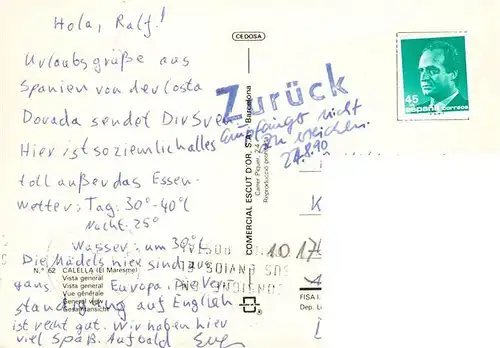 Hola, Ralf!
Urlaubsgrüße aus
Spanien von der Costa
Dorada sendet Dir Sven.
Hier ist so ziemlich alles
toll außer das Essen.
Wetter: Tag: 30°-40°C
Nacht: 25°
Wasser: um 30°C
Die Mädels hier sind aus
ganz Europa. Die Verst
ständigung auf English
ist recht gut. Wir haben hier
viel Spaß. Auf bald
CEDOSA
Zurück
Empfänger nicht
zu erreichen
27.8.90
45
españa correos
COMERCIAL ESCUDT D'OR, S.A. Barcelona
Carrer Piquer, 24
Reproducció
N.º 62 CALELLA (El Maresme)
Vista general
Vista general
Vue générale
General view
Gesamtansicht
1017
CONSIGNE
SUS ENVIOS
POSTAL
FISA I.
Dep. L